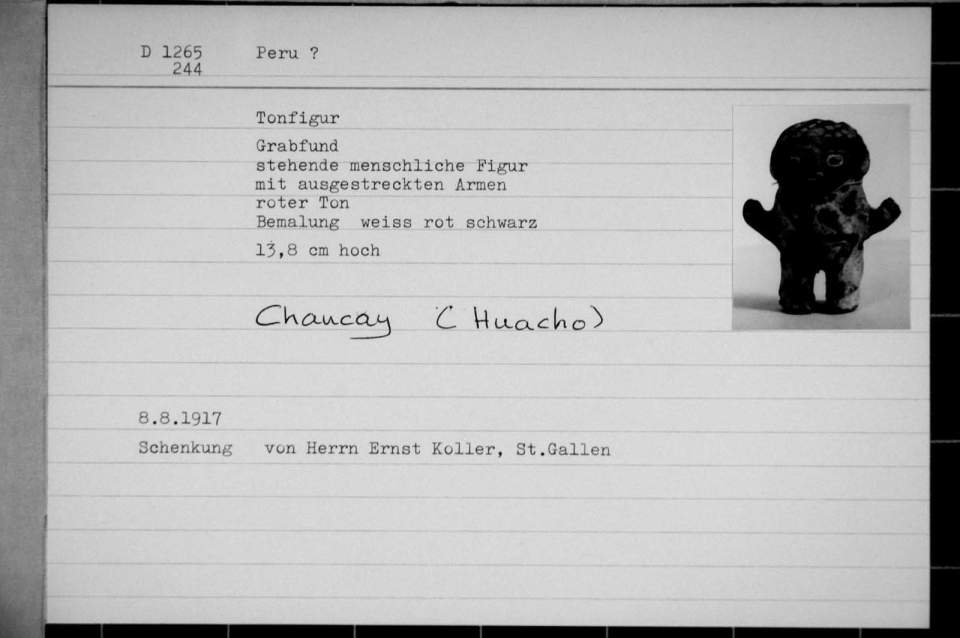 D 1265 Peru ?
244
Tonfigur
Grabfund
stehende menschliche Figur
mit ausgestreckten Armen
roter Ton
Bemalung weiss rot schwarz
13,8 cm hoch
Chancay (Huacho)
8.8.1917
Schenkung von Herrn Ernst Koller, St.Gallen